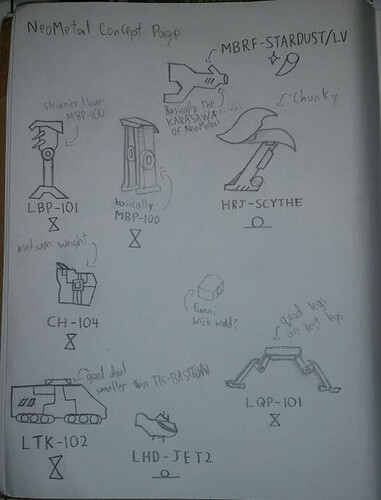 NeoMetal Concept Page
MBRF-STARDUST/LV
Basically the
KARASAWA
OF NeoMetal
Chunky
skinnier than
MBP-100
LBP-101
basically
MBP-100
HRJ-SCYTHE
medium weight
CH-104
funni
brick build?
quad legs
are best legs
LQP-101
good deal
smaller than TK-BASTION
LTK-102
LHD-JET2